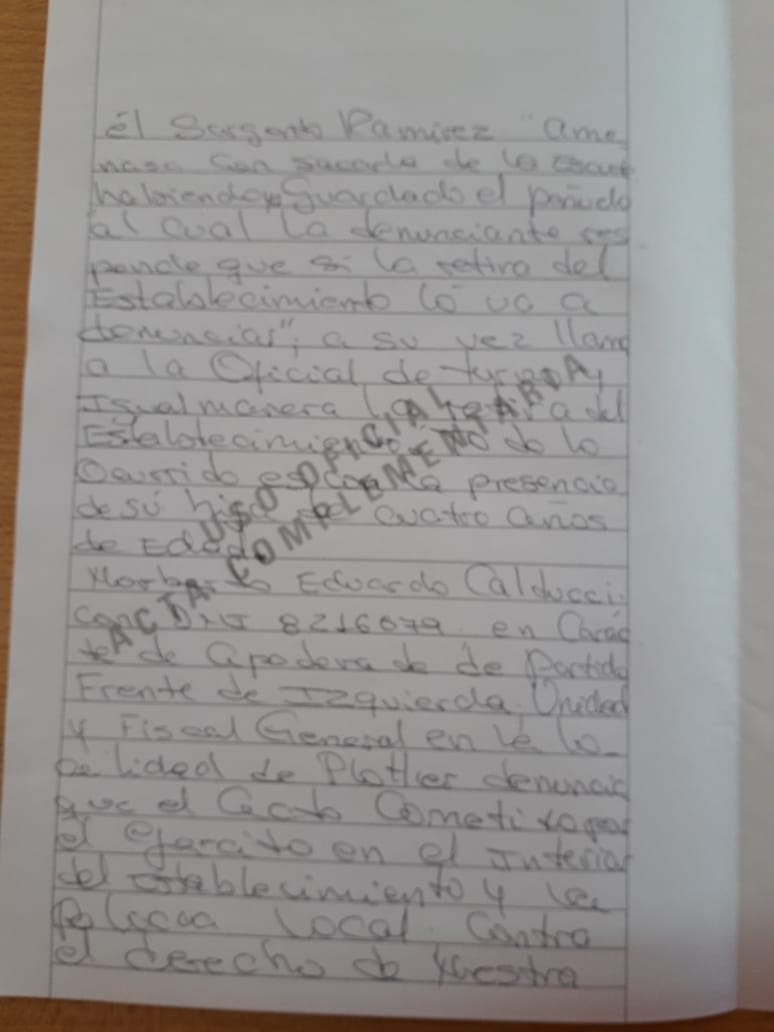 él Sargento Ramirez "ame
nasa con sacarla de la Escue
habiendo ya Guardado el pañuelo
al cual La denunciante res
ponde que si la retira del
Establecimiento lo va a
denunciar", a su vez llama
a la Oficial de turno,
Igual manera la retira del
Establecimiento do lo
Ocurrido es con la presencia
de su de cuatro años
de Edad.
Eduardo Calducci
con D.N.I 8216079 en Carac
te de apoderado de Partido
Frente de Izquierda Unidad
y Fiscal General en la lo
calidad de Plottier denuncia
que el acto Cometido por
el Ejercito en el Interior
del establecimiento y la
Policia Local Contra
el derecho de Nuestra
USO OFICIAL
ACTA COMPLEMENTARIA